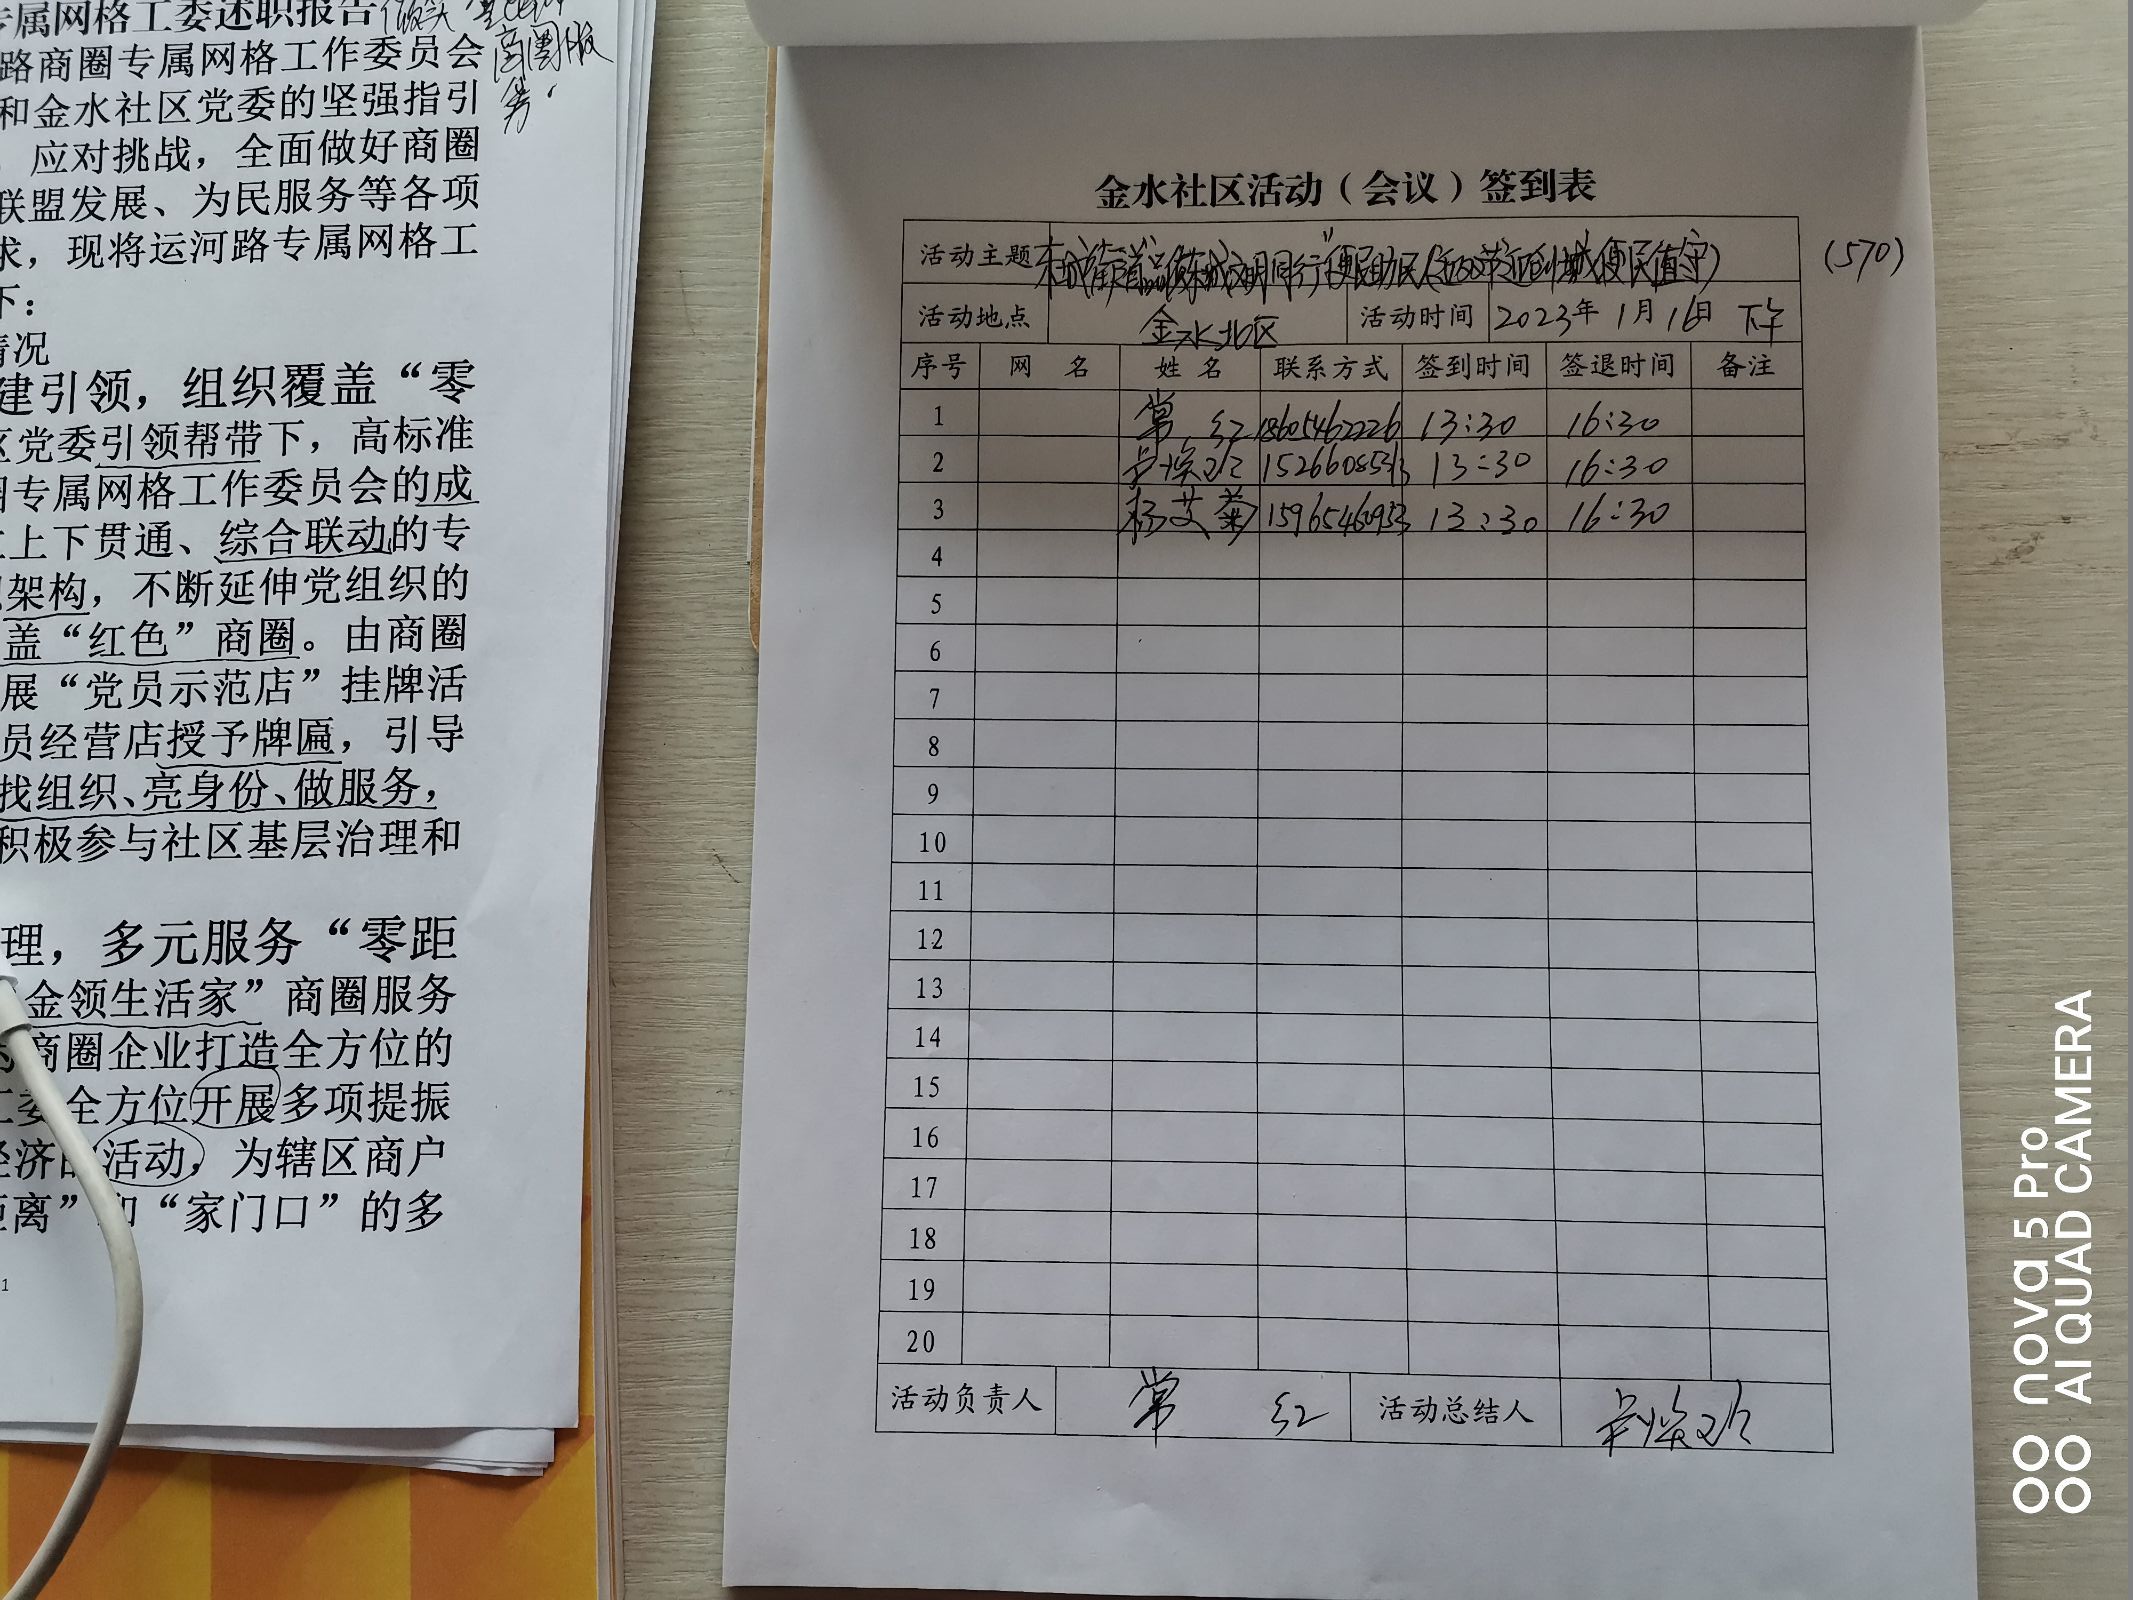 专属网格工委述职报告
商圈服
务
路商圈专属网格工作委员会
和金水社区党委的坚强指引
应对挑战，全面做好商圈
联盟发展、为民服务等各项
求，现将运河路专属网格工
下：
情况
建引领，组织覆盖“零
区党委引领帮带下，高标准
专属网格工作委员会的成
上下贯通、综合联动的专
架构，不断延伸党组织的
盖“红色”商圈。由商圈
展“党员示范店”挂牌活
员经营店授予牌匾，引导
找组织、亮身份、做服务，
积极参与社区基层治理和
理，多元服务“零距
金领生活家”商圈服务
商圈企业打造全方位的
工委全方位开展多项提振
经济的活动，为辖区商户
距离”和“家门口”的多
1
金水社区活动（会议）签到表
活动主题 文明同行”便民助民 创城便民值守） (570)
活动地点 金水北区 活动时间 2023年1月16日 下午
序号 网 名 姓 名 联系方式 签到时间 签退时间 备注
1 常 红 18605462226 13:30 16:30
2 13:30 16:30
3 杨艾菊 13:30 16:30
4
5
6
7
8
9
10
11
12
13
14
15
16
17
18
19
20
活动负责人 常 红 活动总结人
nova 5 Pro
AI QUAD CAMERA